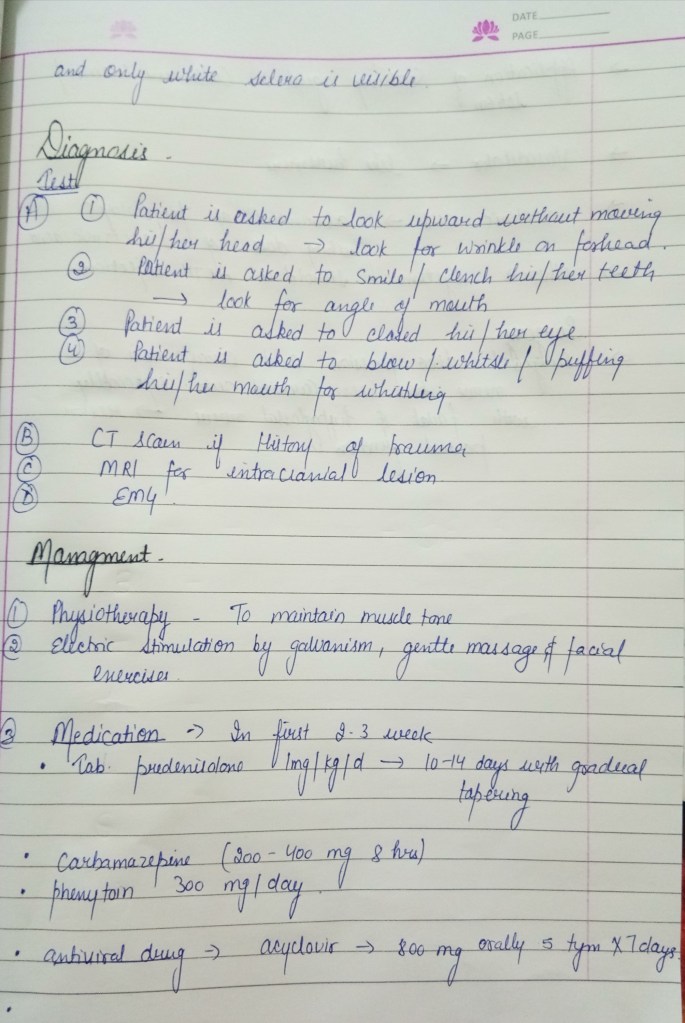 DATE
PAGE
and only white sclera is visible.
Diagnosis.
Test
A 1 Patient is asked to look upward without moving
his/her head → look for wrinkle on forhead.
2 Patient is asked to smile / clench his/her teeth
→ look for angle of mouth
3 Patiend is asked to closed his/her eye
4 Patient is asked to blow / whitsle / puffing
his/her mouth for whistling
B CT scan if History of trauma
C MRI for intracranial lesion
D EMG
Managment.
1 Physiotherapy - To maintain muscle tone
2 Electric stimulation by galvanism, gentle massage & facial
exercises.
3 Medication → In first 2-3 week
• Tab. predenisolone 1mg/kg/d → 10-14 days with gradual
tapering
• Carbamazepine (200-400 mg 8 hrs)
• phenytoin 300 mg/day.
• antiviral drug → acyclovir → 800 mg orally 5 tym x 7 days.
•